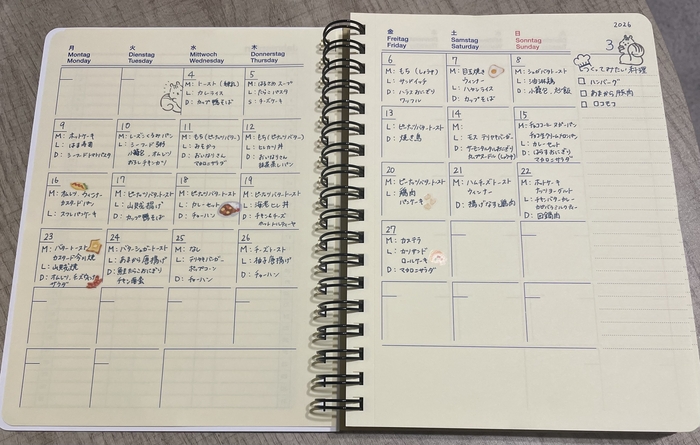 月
Montag
Monday
火
Dienstag
Tuesday
水
Mittwoch
Wednesday
木
Donnerstag
Thursday
4
M: トースト
L: カレーライス
D: カップ鴨そば
5
M: はるさめスープ
L: たらこパスタ
S: チーズケーキ
9
M: ホットケーキ
L:
D: シーフードトマトパスタ
10
M: レーズンくるみパン
L: シーフード
小籠包、オムレツ
おろしチキンカツ
11
M: もち(ピーナッツバター)
L: あそがう
D: おいなりさん
マカロニサラダ
12
M: もち(ピーナッツバター)
L: ヒレカツ丼
D: おいなりさん
抹茶蒸しパン
16
M: オムレツ、ウィンナー
カスタードパン
L: スフレパンケーキ
17
M: ピーナッツバタートースト
L: 山賊焼
D: カップ鴨そば
18
M: ピーナッツバタートースト
L: カレーセット
D: チャーハン
19
M: ピーナッツバタートースト
L: 海老ヒレ丼
D: チキンチーズ
ホットトルティーヤ
23
M: バタートースト
カスタード今川焼
L: 山賊焼
D: オムレツ、モズク
サラダ
24
M: バターシュガートースト
L: あまから唐揚げ
D: 鮭たらこおにぎり
チキン南蛮
25
M: なし
L: テリヤキバーガー
ポップコーン
D: チャーハン
26
M: チーズトースト
L: 柚子唐揚げ
D: チャーハン
金
Freitag
Friday
土
Samstag
Saturday
日
Sonntag
Sunday
2026
3
6
M: もち(しょうゆ)
L: サンドイッチ
D: ハラミおにぎり
ワッフル
7
M: 目玉焼き
ウィンナー
L: ハヤシライス
D: カップそば
8
M: シュガーバタトースト
L: 油淋鶏
D: 小籠包、炒飯
つくってみたい料理
□ ハンバーグ
□ あまから豚肉
□ ロコモコ
13
L: ピーナッツバタートースト
D: 焼き鳥
14
M:
L: モス テリヤキバーガー
D: サーモンタルタルおにぎり
カップヌードル(しょうゆ)
15
M: チョココロネ、
チョコ生クリームメロンパン
L: カレーセット
D: はらすおにぎり
マカロニサラダ
20
M: ピーナッツバタートースト
L: 鶏肉
パンケーキ
21
M: ハムチーズトースト
L: ウィンナー
D: 揚げなす鶏肉
22
M: ホットケーキ
ナッツヨーグルト
L: チキンバターカレー
D: 回鍋肉
27
M: カステラ
L: カツサンド
ロールケーキ
D: マカロニサラダ